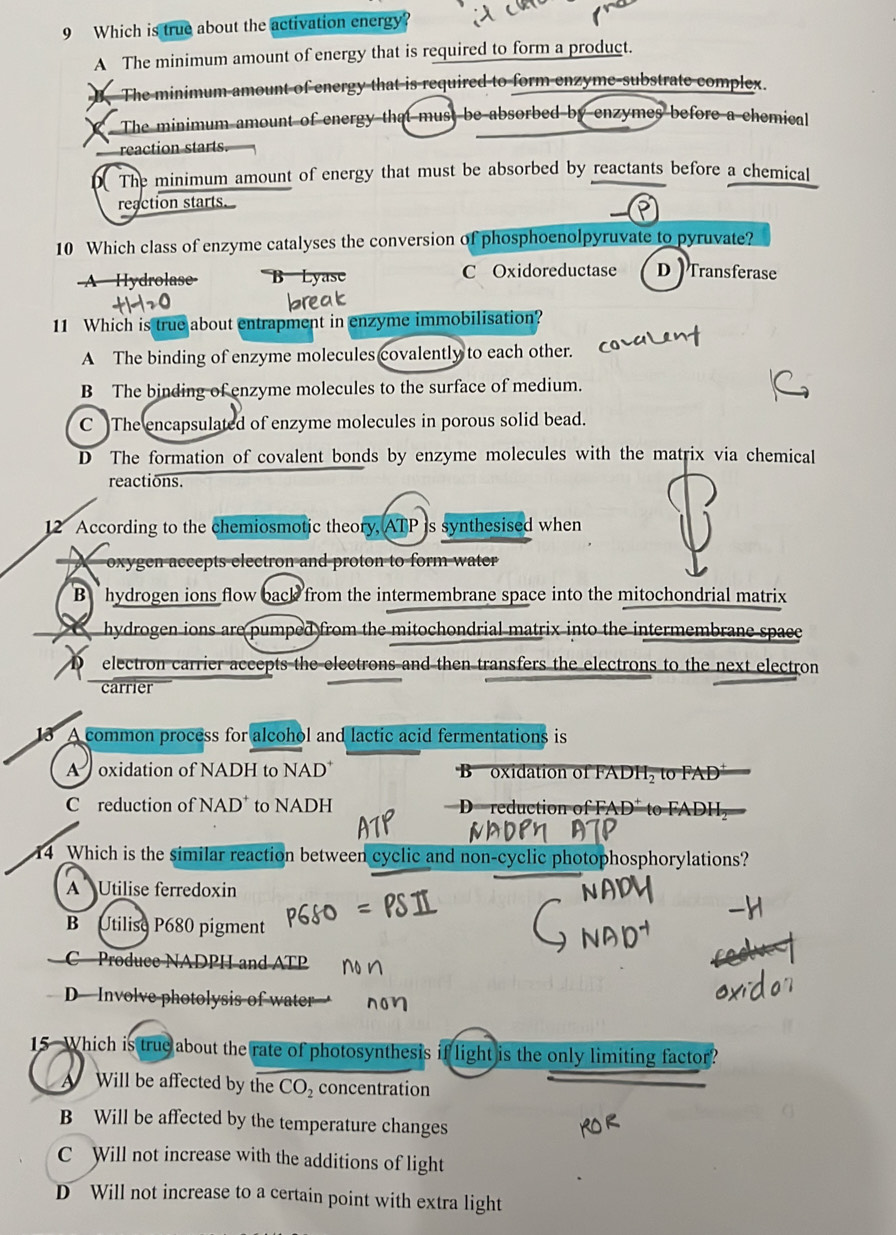 it
9 Which is true about the activation energy?
A The minimum amount of energy that is required to form a product.
B The minimum amount of energy that is required to form enzyme-substrate complex.
C The minimum amount of energy that must be absorbed by enzymes before a chemical
reaction starts.
D The minimum amount of energy that must be absorbed by reactants before a chemical
reaction starts.
-P
10 Which class of enzyme catalyses the conversion of phosphoenolpyruvate to pyruvate?
A Hydrolase B Lyase C Oxidoreductase D Transferase
+H20 break
11 Which is true about entrapment in enzyme immobilisation?
A The binding of enzyme molecules covalently to each other. covalent
B The binding of enzyme molecules to the surface of medium.
C The encapsulated of enzyme molecules in porous solid bead.
D The formation of covalent bonds by enzyme molecules with the matrix via chemical
reactions.
12 According to the chemiosmotic theory, ATP is synthesised when
A oxygen accepts electron and proton to form water
B hydrogen ions flow back from the intermembrane space into the mitochondrial matrix
C hydrogen ions are pumped from the mitochondrial matrix into the intermembrane space
D electron carrier accepts the electrons and then transfers the electrons to the next electron
carrier
13 A common process for alcohol and lactic acid fermentations is
A oxidation of NADH to NAD⁺ B oxidation of FADH₂ to FAD⁺
C reduction of NAD⁺ to NADH D reduction of FAD⁺ to FADH₂
ATP NADPH ATP
14 Which is the similar reaction between cyclic and non-cyclic photophosphorylations?
A Utilise ferredoxin NADH
B Utilise P680 pigment P680 = PS II NAD+ -H
C Produce NADPH and ATP non reduct
D Involve photolysis of water non oxidoi
15 Which is true about the rate of photosynthesis if light is the only limiting factor?
A Will be affected by the CO₂ concentration
B Will be affected by the temperature changes ROR
C Will not increase with the additions of light
D Will not increase to a certain point with extra light